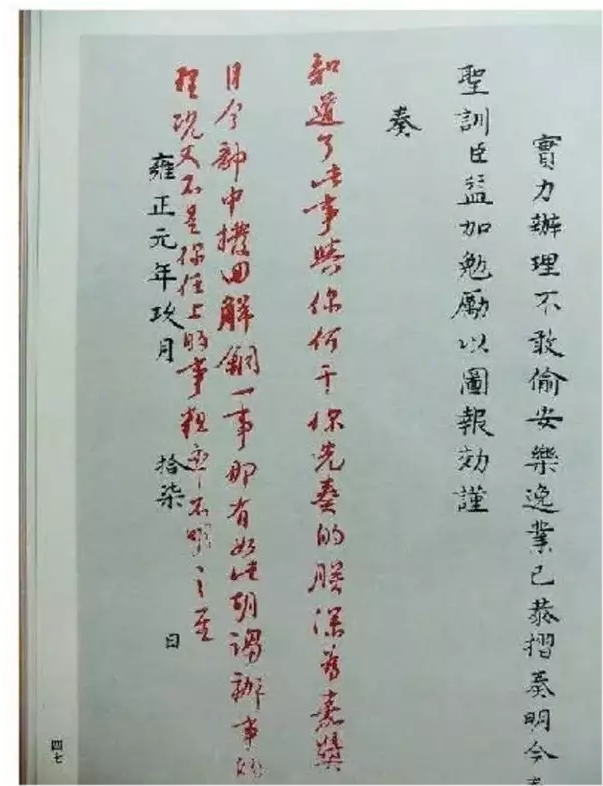 實力辦理不敢偷安樂逸業已恭摺奏明今
聖訓臣益加勉勵以圖報効謹
奏
知道了此事與你何干你先奏的朕深爲嘉獎
目今部中撥回解餉一事那有如此胡謅辦事的
理况又不是你任上的事粗率不明之至
雍正元年玖月 拾柒 日
四七